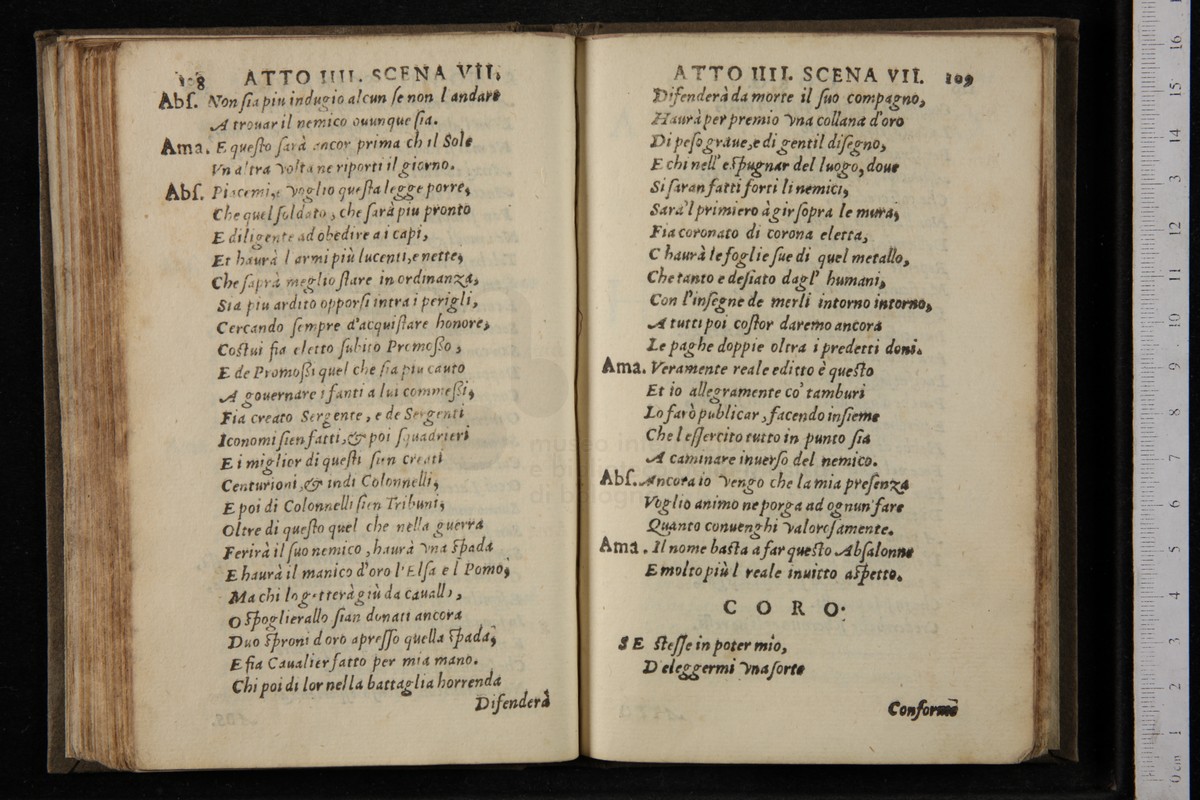 108 ATTO IIII. SCENA VII.
Abſ. Non ſia piu indugio alcun ſe non l andare
A trouar il nemico ouunque ſia.
Ama. E queſto ſarà ancor prima ch il Sole
Vn altra volta ne riporti il giorno.
Abſ. Piacemi, e voglio queſta legge porre,
Che quel ſoldato, che ſarà piu pronto
E diligente ad obedire a i capi,
Et haurà l armi più lucenti, e nette,
Che ſaprà meglio ſtare in ordinanza,
Sia piu ardito opporſi intra i perigli,
Cercando ſempre d'acquiſtare honore,
Coſtui fia eletto ſubito Promoſſo,
E de Promoſſi quel che ſia piu cauto
A gouernare i fanti a lui commeſſi,
Fia creato Sergente, e de Sergenti
Iconomi ſien fatti, & poi ſquadrieri
E i miglior di queſti ſien creati
Centurioni, & indi Colonnelli,
E poi di Colonnelli ſien Tribuni,
Oltre di queſto quel che nella guerra
Ferirà il ſuo nemico, haurà vna ſpada
E haurà il manico d'oro l'Elſa e l Pomo,
Ma chi lo getterà giù da cauallo,
O ſpoglierallo ſian donati ancora
Duo ſproni d oro apreſſo quella ſpada,
E fia Caualier fatto per mia mano.
Chi poi di lor nella battaglia horrenda
Difenderà
ATTO IIII. SCENA VII. 109
Difenderà da morte il ſuo compagno,
Haurà per premio vna collana d'oro
Di peſo graue, e di gentil diſegno,
E chi nell' eſpugnar del luogo, doue
Si ſaran fatti forti li nemici,
Sarà'l primiero à gir ſopra le mura,
Fia coronato di corona eletta,
C haurà le foglie ſue di quel metallo,
Che tanto e deſiato dagl' humani,
Con l'inſegne de merli intorno intorno,
A tutti poi coſtor daremo ancora
Le paghe doppie oltra i predetti doni.
Ama. Veramente reale editto è queſto
Et io allegramente co' tamburi
Lo farò publicar, facendo inſieme
Che l eſſercito tutto in punto ſia
A caminare inuerſo del nemico.
Abſ. Ancora io vengo che la mia preſenza
Voglio animo ne porga ad ognun' fare
Quanto conuenghi valoroſamente.
Ama. Il nome baſta a far queſto Abſalonne
E molto più l reale inuitto aſpetto.
CORO.
SE ſteſſe in poter mio,
D eleggermi vna ſorte
Conforme